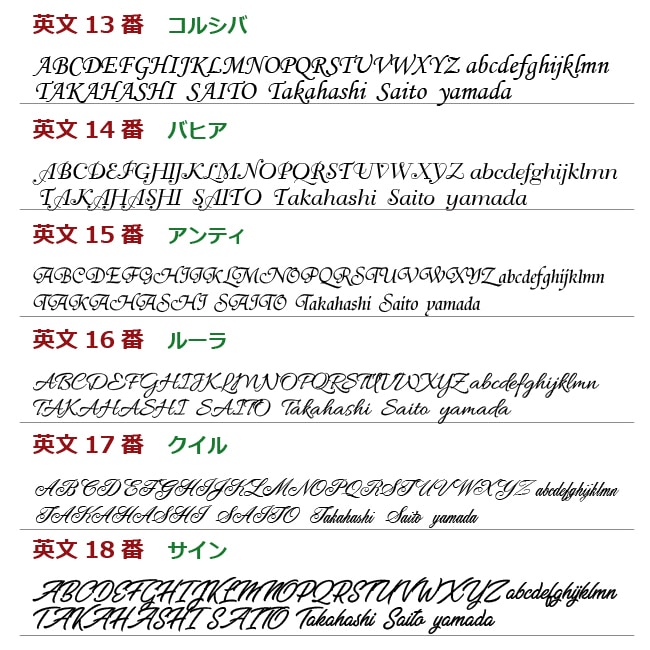 英文 13 番 コルシバ
ABCDEFGHIJKLMNOPQRSTUVWXYZ abcdefghijklmn
TAKAHASHI SAITO Takahashi Saito yamada
英文 14 番 バヒア
ABCDEFGHIJKLMNOPQRSTUVWXYZ abcdefghijklmn
TAKAHASHI SAITO Takahashi Saito yamada
英文 15 番 アンティ
ABCDEFGHIJKLMNOPQRSTUVWXYZ abcdefghijklmn
TAKAHASHI SAITO Takahashi Saito yamada
英文 16 番 ルーラ
ABCDEFGHIJKLMNOPQRSTUVWXYZ abcdefghijklmn
TAKAHASHI SAITO Takahashi Saito yamada
英文 17 番 クイル
ABCDEFGHIJKLMNOPQRSTUVWXYZ abcdefghijklmn
TAKAHASHI SAITO Takahashi Saito yamada
英文 18 番 サイン
ABCDEFGHIJKLMNOPQRSTUVWXYZ abcdefghijklmn
TAKAHASHI SAITO Takahashi Saito yamada